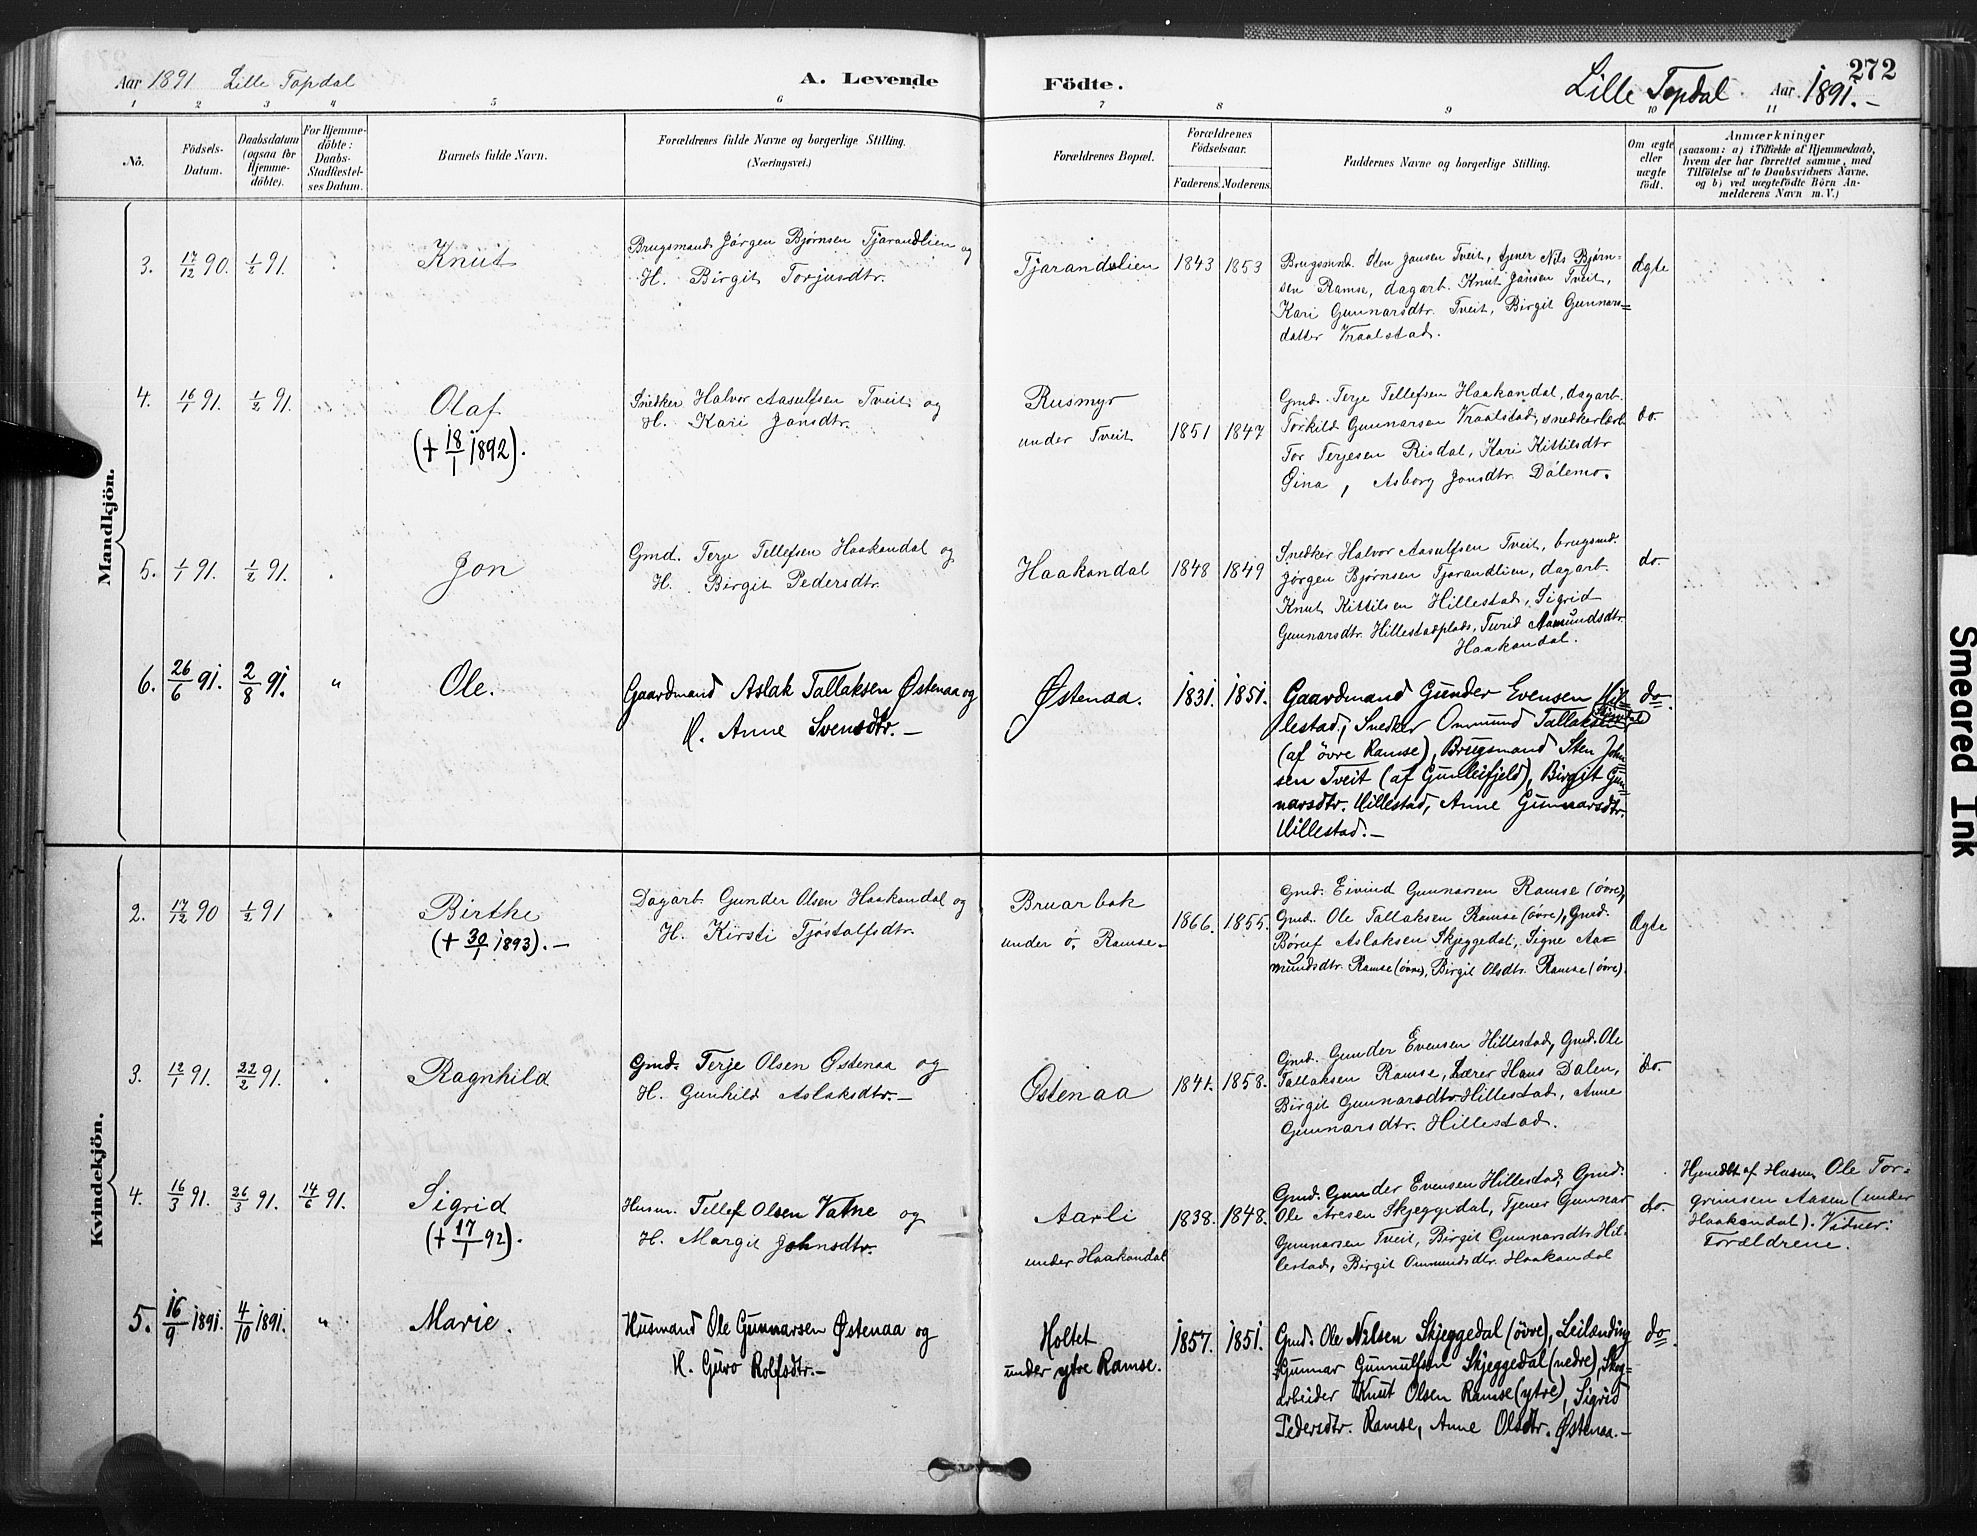 Aar 1891 Lille Topdal
A. Levende Födte.
Lille Topdal. Aar 1891.-
272
1 2 3 4 5 6 7 8 9 10 11
No.
Födsels-
Datum.
Daabsdatum
(ogsaa for
Hjemme-
döbte).
For Hjemme-
döbte:
Daabs-
Stadfæstel-
ses Datum.
Barnets fulde Navn.
Forældrenes fulde Navne og borgerlige Stilling.
(Næringsvei.)
Forældrenes Bopæl.
Forældrenes
Födselsaar.
Faderens. Moderens.
Faddernes Navne og borgerlige Stilling.
Om ægte
eller
uægte
födt.
Anmærkninger
(saasom: a) i Tilfælde af Hjemmedaab,
hvem der har forrettet samme, med
Tilföielse af to Daabsvidners Navne.
og b) ved uægtefödte Börn An-
melderens Navn m. V.)
Mandkjön.
3. 17/12 90. 1/2 91. Knut
Brugsmand Jørgen Bjørnsen Tjarandlien og
H. Birgit Torjusdtr.
Tjarandslien 1843 1853
Brugsmd. Sten Jonsen Tveit, tjener Nils Bjørn=
sen Ramse, dagarb. Knut Jonsen Tveit,
Kari Gunnarsdtr. Tveit, Birgit Gunnars=
datter Vraalstad.
Ægte
4. 16/1 91. 1/2 91. Olaf
(+ 18/1 1892).
Snedker Halvor Aasulfsen Tveit og
H. Kari Jonsdtr.
Rusmyr
under Tveit 1851 1847
Gmd. Terje Tellefsen Haakondal, dagarb.
Torkild Gunnarsen Vraalstad, snedkerlærl.
Tor Terjesen Risdal, Kari Kittilsdtr
Gina, Asborg Jonsdtr. Dålemo.
do.
5. 1/1 91. 1/2 91. Jon
Gmd. Terje Tellefsen Haakondal og
H. Birgit Pedersdtr.
Haakondal 1848 1849
Snedker Halvor Aasulfsen Tveit, brugsmd.
Jørgen Bjørnsen Tjarandlien, dagarb.
Knut Kittilsen Hillestad, Sigrid
Gunnarsdtr. Hillestadplads, Turid Aamundsdtr.
Haakondal.
do.
6. 26/6 91. 2/8 91. " Ole.
Gaardmand Aslak Tallaksen Østenaa og
H. Anne Svensdtr. -
Østenaa. 1831. 1851.
Gaardmand Gunder Evensen Hil=
lestad, Snedker Ommund Tallaksen
(af övre Ramse), Brugsmand Sten John=
sen Tveit (af Gunleifjeld), Birgit Gun=
narsdtr. Hillestad, Anne Gunnarsdtr.
Hillestad.-
do.
Kvindekjön.
2. 17/12 90 1/2 91 Birthe
(+ 30/1 1893). -
Dagarb. Gunder Olsen Haakondal og
H. Kirsti Tjøstolfsdtr.
Bruarbak
under ö. Ramse. 1866. 1855.
Gmd. Eivind Gunnarsen Ramse (övre),
Gmd. Ole Tallaksen Ramse (övre), Gmd.
Böruf Aslaksen Skjeggedal, Signe Aa=
mundsdtr. Ramse (övre), Birgit Olsdtr. Ramse (övre).
Ægte
3. 12/1 91. 22/2 91. Ragnhild
Gmd. Terje Olsen Østenaa og
H. Gunhild Aslaksdtr. -
Østenaa 1841. 1858.
Gmd. Gunder Evensen Hillestad, Gmd. Ole
Tallaksen Ramse, Lærer Hans Dalen,
Birgit Gunnarsdtr Hillestad, Anne
Gunnarsdtr. Hillestad.
do.
4. 16/3 91. 26/3 91. 14/6 91. Sigrid
(+ 17/1 92).
Husm. Tellef Olsen Vatne og
H. Margit Johnsdtr.
Aarli
under Haakondal 1838. 1848.
Gmd. Gunder Evensen Hillestad, Gmd.
Ole Aresen Skjeggedal, Tjener Gunnar
Gunnarsen Tveit, Birgit Gunnarsdtr. Hil-
lestad, Birgit Ommundsdtr. Haakondal
do.
Hjemdbt af Husm. Ole Tor=
grimsen Aasen (under
Haakondal). Vidner:
Forældrene.
5. 16/9 1891. 4/10 1891. " Marie.
Husmand Ole Gunnarsen Østenaa og
H. Guro Rolfsdtr.-
Holtet
under ytre Ramse. 1857. 1851.
Gmd. Ole Nilsen Skjeggedal (övre), Leilænding
Gunnar Gunnulfsen Skjeggedal (nedre), Skog=
arbeider Knut Olsen Ramse (ytre), Sigrid
Pedersdtr. Ramse, Anne Olsdtr. Østenaa.-
do.
Smeared Ink